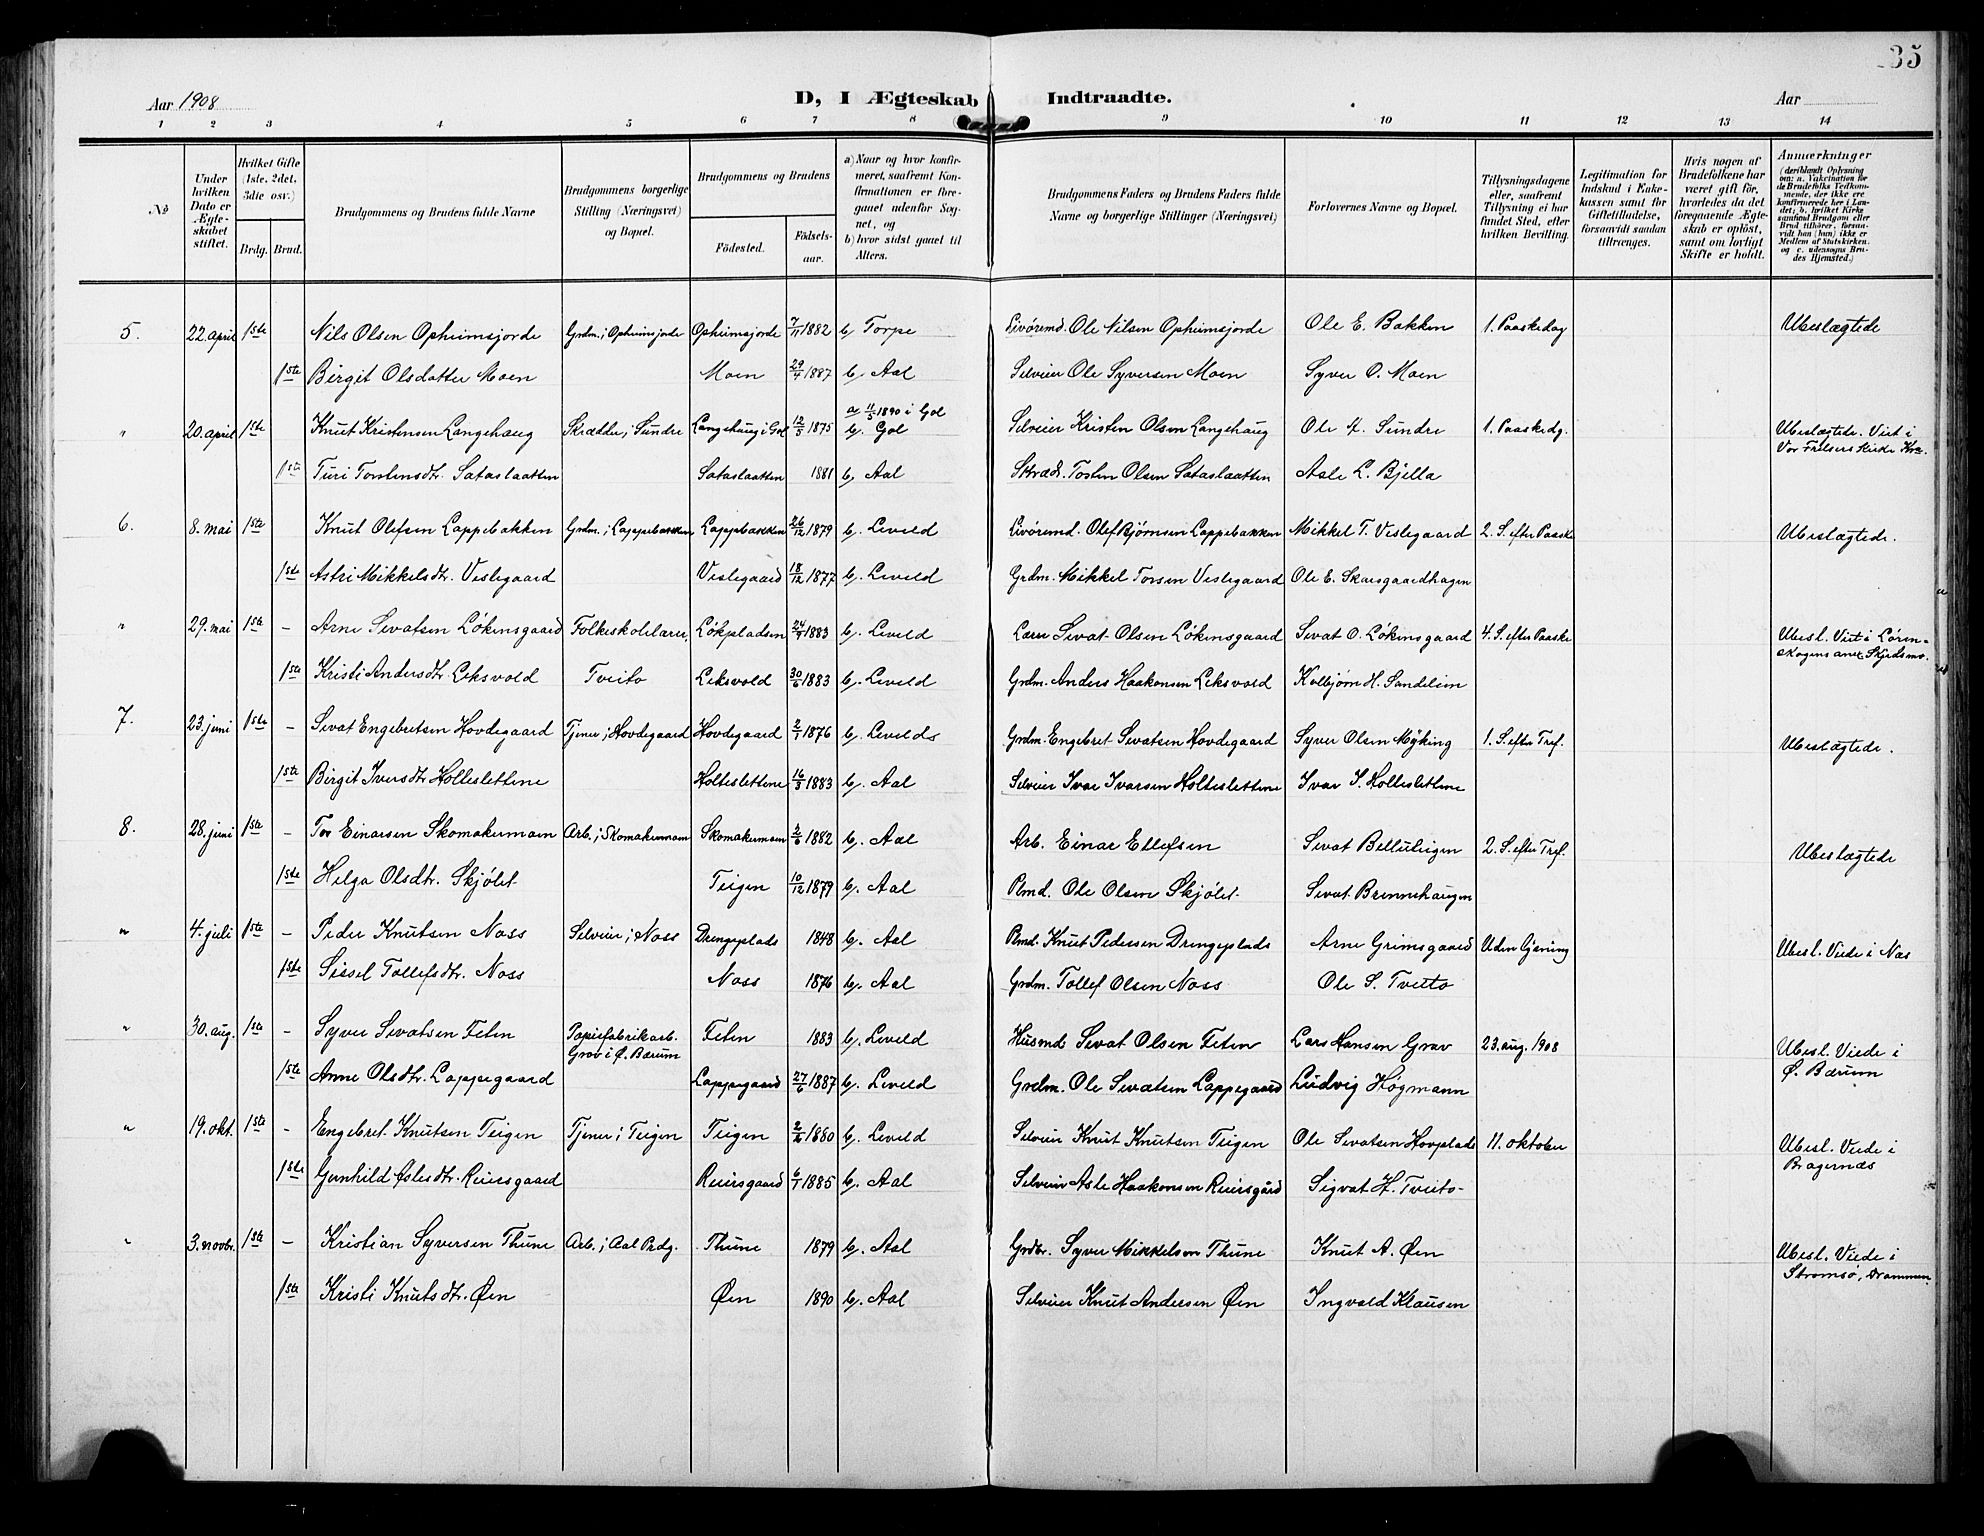 35
Aar 1908 D, I Ægteskab Indtraadte. Aar
1 2 3 4 5 6 7 8 9 10 11 12 13 14
No
Under hvilken Dato er Ægte- skabet stiftet.
Hvilket Gifte (1ste, 2det, 3die osv.)
Brdg. Brud.
Brudgommens og Brudens fulde Navne
Brudgommens borgerlige Stilling (Næringsvei) og Bopæl.
Brudgommens og Brudens
Fødested.
Fødsels- aar.
a) Naar og hvor konfir- meret, saafremt Kon- firmationen er fore- gaaet udenfor Sog- net, og
b) hvor sidst gaaet til Alters.
Brudgommens Faders og Brudens Faders fulde Navne og borgerlige Stillinger (Næringsvei)
Forlovernes Navne og Bopæl.
Tillysningsdagene eller, saafremt Tillysning ei har fundet Sted, efter hvilken Bevilling.
Legitimation for Indskud i Enke- kassen samt for Giftetilladelse, forsaavidt saadan tiltrænges.
Hvis nogen af Brudefolkene har været gift før, hvorledes da det foregaaende Ægte- skab er opløst, samt om lovligt Skifte er holdt.
Anmærkninger (deriblandt Oplysning om: a. Vakcination for de Brudefolks Vedkom- mende, der ikke ere konfirmerede her i Lan- det; b. hvilket Kirke- samfund Brudgom eller Brud tilhører, forsaa- vidt han (hun) ikke er Medlem af Statskirken. og c. udensogns Bru- des Hjemsted.)
5. 22 april 1ste Nils Olsen Opheimsjorde Grdm. i Opheimsjorde Opheimsjorde 7/11 1882 b, Torpe Livöremd. Ole Nilsen Opheimsjorde Ole E. Bakken 1. Paaskedag Ubeslægtede
1ste Birgit Olsdatter Moen Moen 29/4 1887 b, Aal Selveier Ole Syversen Moen Syver O. Moen
a 11/5 1890 i Gol
" 20. april 1ste Knut Kristensen Langehaug Skrædder i Sundre Langehaug i Gol 12/5 1875 b, Gol Selveier Kristen Olsen Langehaug Ole 4. Sundre 1. Paaskedg. Ubeslægtede. Viet i
Vor Frelsers Kirke Kra.
1ste Turi Torstensdtr. Sataslaatten Sataslaatten 1881 b, Aal Skræd. Tosten Olsen Sataslaatten Asle L. Bjella
6. 8. mai 1ste Knut Olefsen Lappebakken Grdm. i Lappebakken Lappebakken 26/12 1879 b, Leveld Livöremd. Olef Bjørnsen Lappebakken Mikkel T. Veslegaard 2. S. efter Paaske Ubeslægtede.
1ste Astri Mikkelsdtr. Veslegaard Veslegaard 18/12 1877 b, Leveld Grdm. Mikkel Torsen Veslegaard Ole E. Skarsgaardhagen
" 29. mai 1ste – Arne Sevatsen Lökensgaard Folkeskolelærer, Lökpladsen 24/7 1883 b, Leveld Lærer Sevat Olsen Lökensgaard Sevat O. Lökensgaard 4. S. efter Paaske Ubesl. Viet i Lören-
skogens anex Skjedsmo.
1ste Kristi Andersdtr. Leksvold Tveito Leksvold 30/6 1883 b, Leveld Grdm. Anders Haakonsen Leksvold Kolbjørn H. Sandelien
7. 23. juni 1ste – Sevat Engebretsen Hovdegaard Tjener i Hovdegaard Hovdegaard 2/1 1876 b, Levelds Grdm. Engebret Sevatsen Hovdegaard Syver Olsen Myking 1. S. efter Tref. Ubeslægtede.
1ste Birgit Iversdtr. Holteslettene Holteslettene 16/3 1883 b, Aal Selveier Ivar Ivarsen Holteslettene Ivar I. Holteslettene
8. 28. juni 1ste – Tor Einarsen Skomakermoen Arb. i Skomakermoen Skomakermoen 2/6 1882 b, Aal Arb. Einar Ellefsen Sevat Bellulingen 2. S. efter Tref. Ubeslægtede
1ste Helga Olsdtr. Skjølet Teigen 10/12 1879 b, Aal Plmd. Ole Olsen Skjølet Sevat Brennehaugen
" 4. juli 1ste – Peder Knutsen Noss Selveier i Noss Drengeplads 1848 b, Aal Plmd. Knut Pedersen Drengeplads Arne Grimsgaard Uden lysning Ubesl. Viede i Næs
1ste Sissel Tollefsdtr. Noss Noss 1876 b, Aal Grdm. Tollef Olsen Noss Ole S. Tveito
" 30. aug. 1ste – Syver Sevatsen Feten Papirfabrikarb. Feten 1883 b, Leveld Husmd Sevat Olsen Feten Lars Hansen Grav 23. aug. 1908 Ubesl. Viede i
Grav i Ø. Bærum Ø. Bærum
1ste Anne Olsdtr. Lappegaard Lappegaard 27/6 1887 b, Leveld Grdm. Ole Sevatsen Lappegaard Ludvig Høgmann
" 19. okt. 1ste – Engebret Knutsen Teigen Tjener i Teigen Teigen 2/6 1880 b, Leveld Selveier Knut Knutsen Teigen Ole Sevatsen Hovplads 11. oktober Ubesl. Viede i
Bragernæs
1ste Gunhild Aslesdtr. Ruiersgaard Ruiersgaard 6/1 1885 b, Aal Selveier Asle Haakonsen Ruiersgård Sigvat H. Tveito
" 3. novbr. 1ste – Kristian Syversen Thune Arb. i Aal Prdg. Thune 1879 b, Aal Grdbr. Syver Mikkelsen Thune Knut A. Øen Ubesl. Viede i
Strømsø, Drammen.
1ste Kristi Knutsdtr. Øen Øen 1890 b, Aal Selveier Knut Andersen Øen Ingvald Klausen